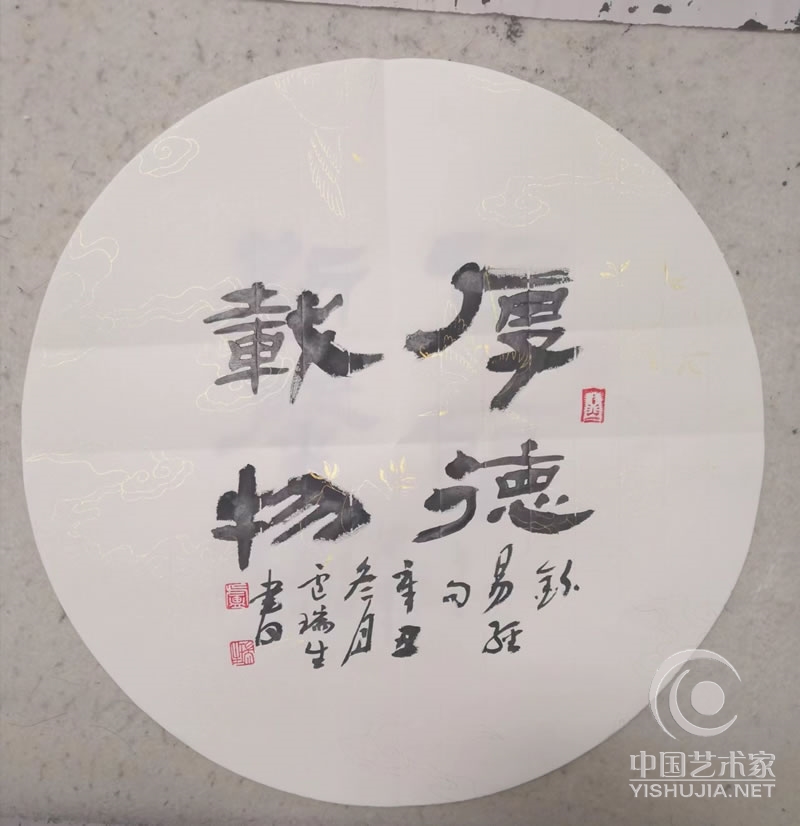 厚德
載物
錄
易經
句
辛丑
冬月
卢瑞生
書
中国艺术家
YISHUJIA.NET